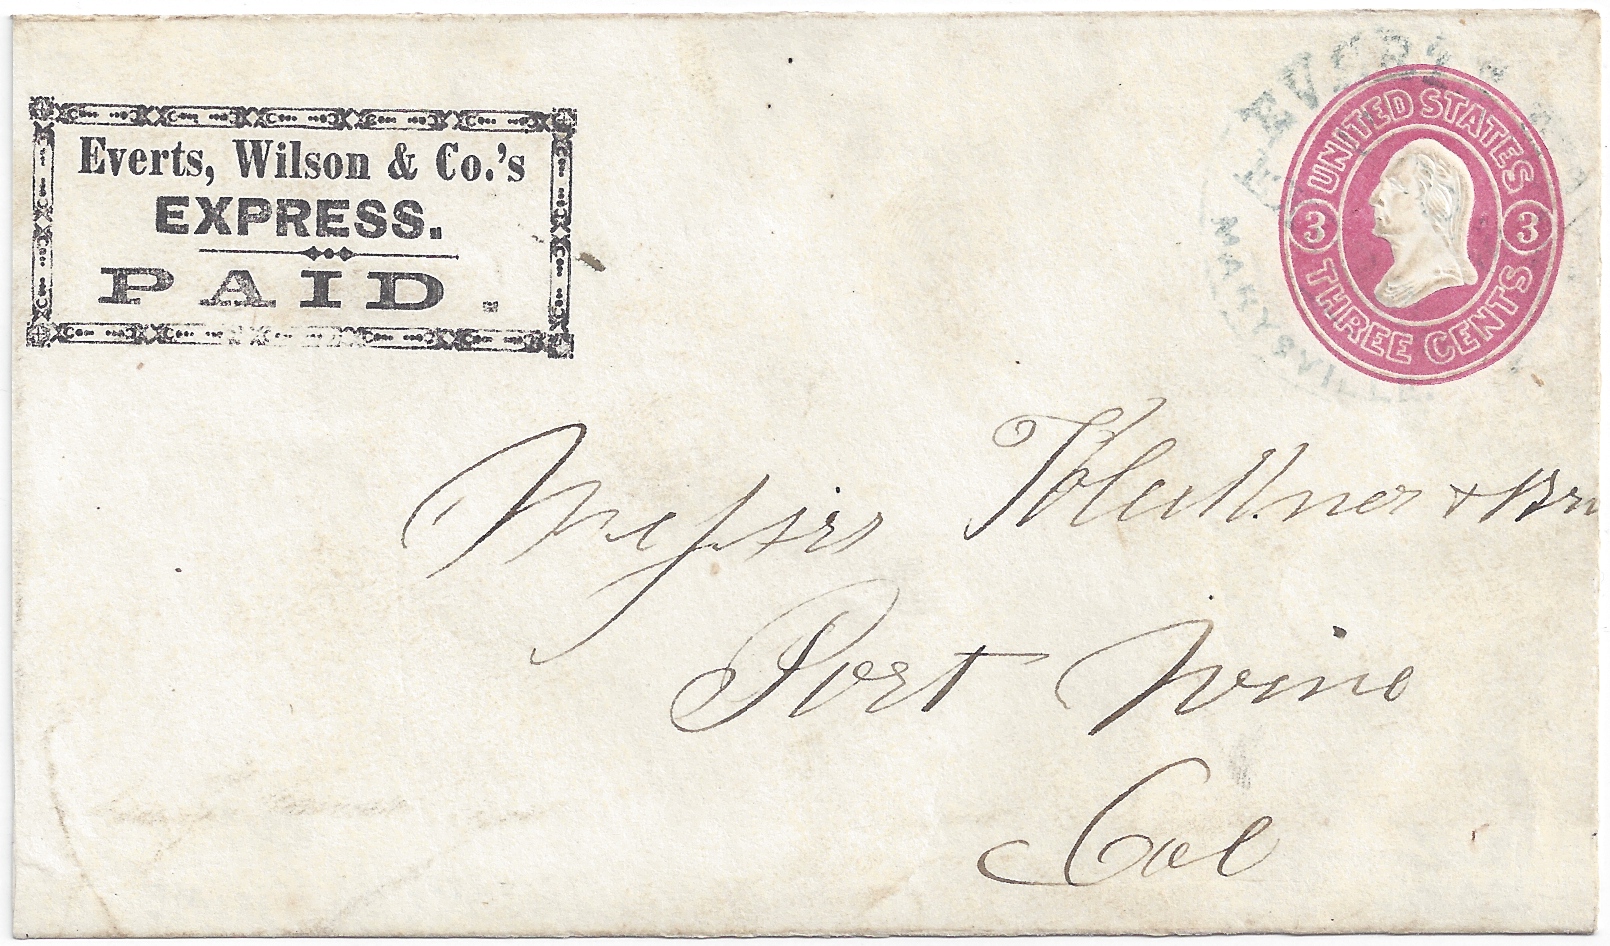 Everts, Wilson & Co.'s
EXPRESS.
PAID.
UNITED STATES
3 3
THREE CENTS
EVERTS
MARYSVILLE
Messrs & Bro
Port Wine
Cal